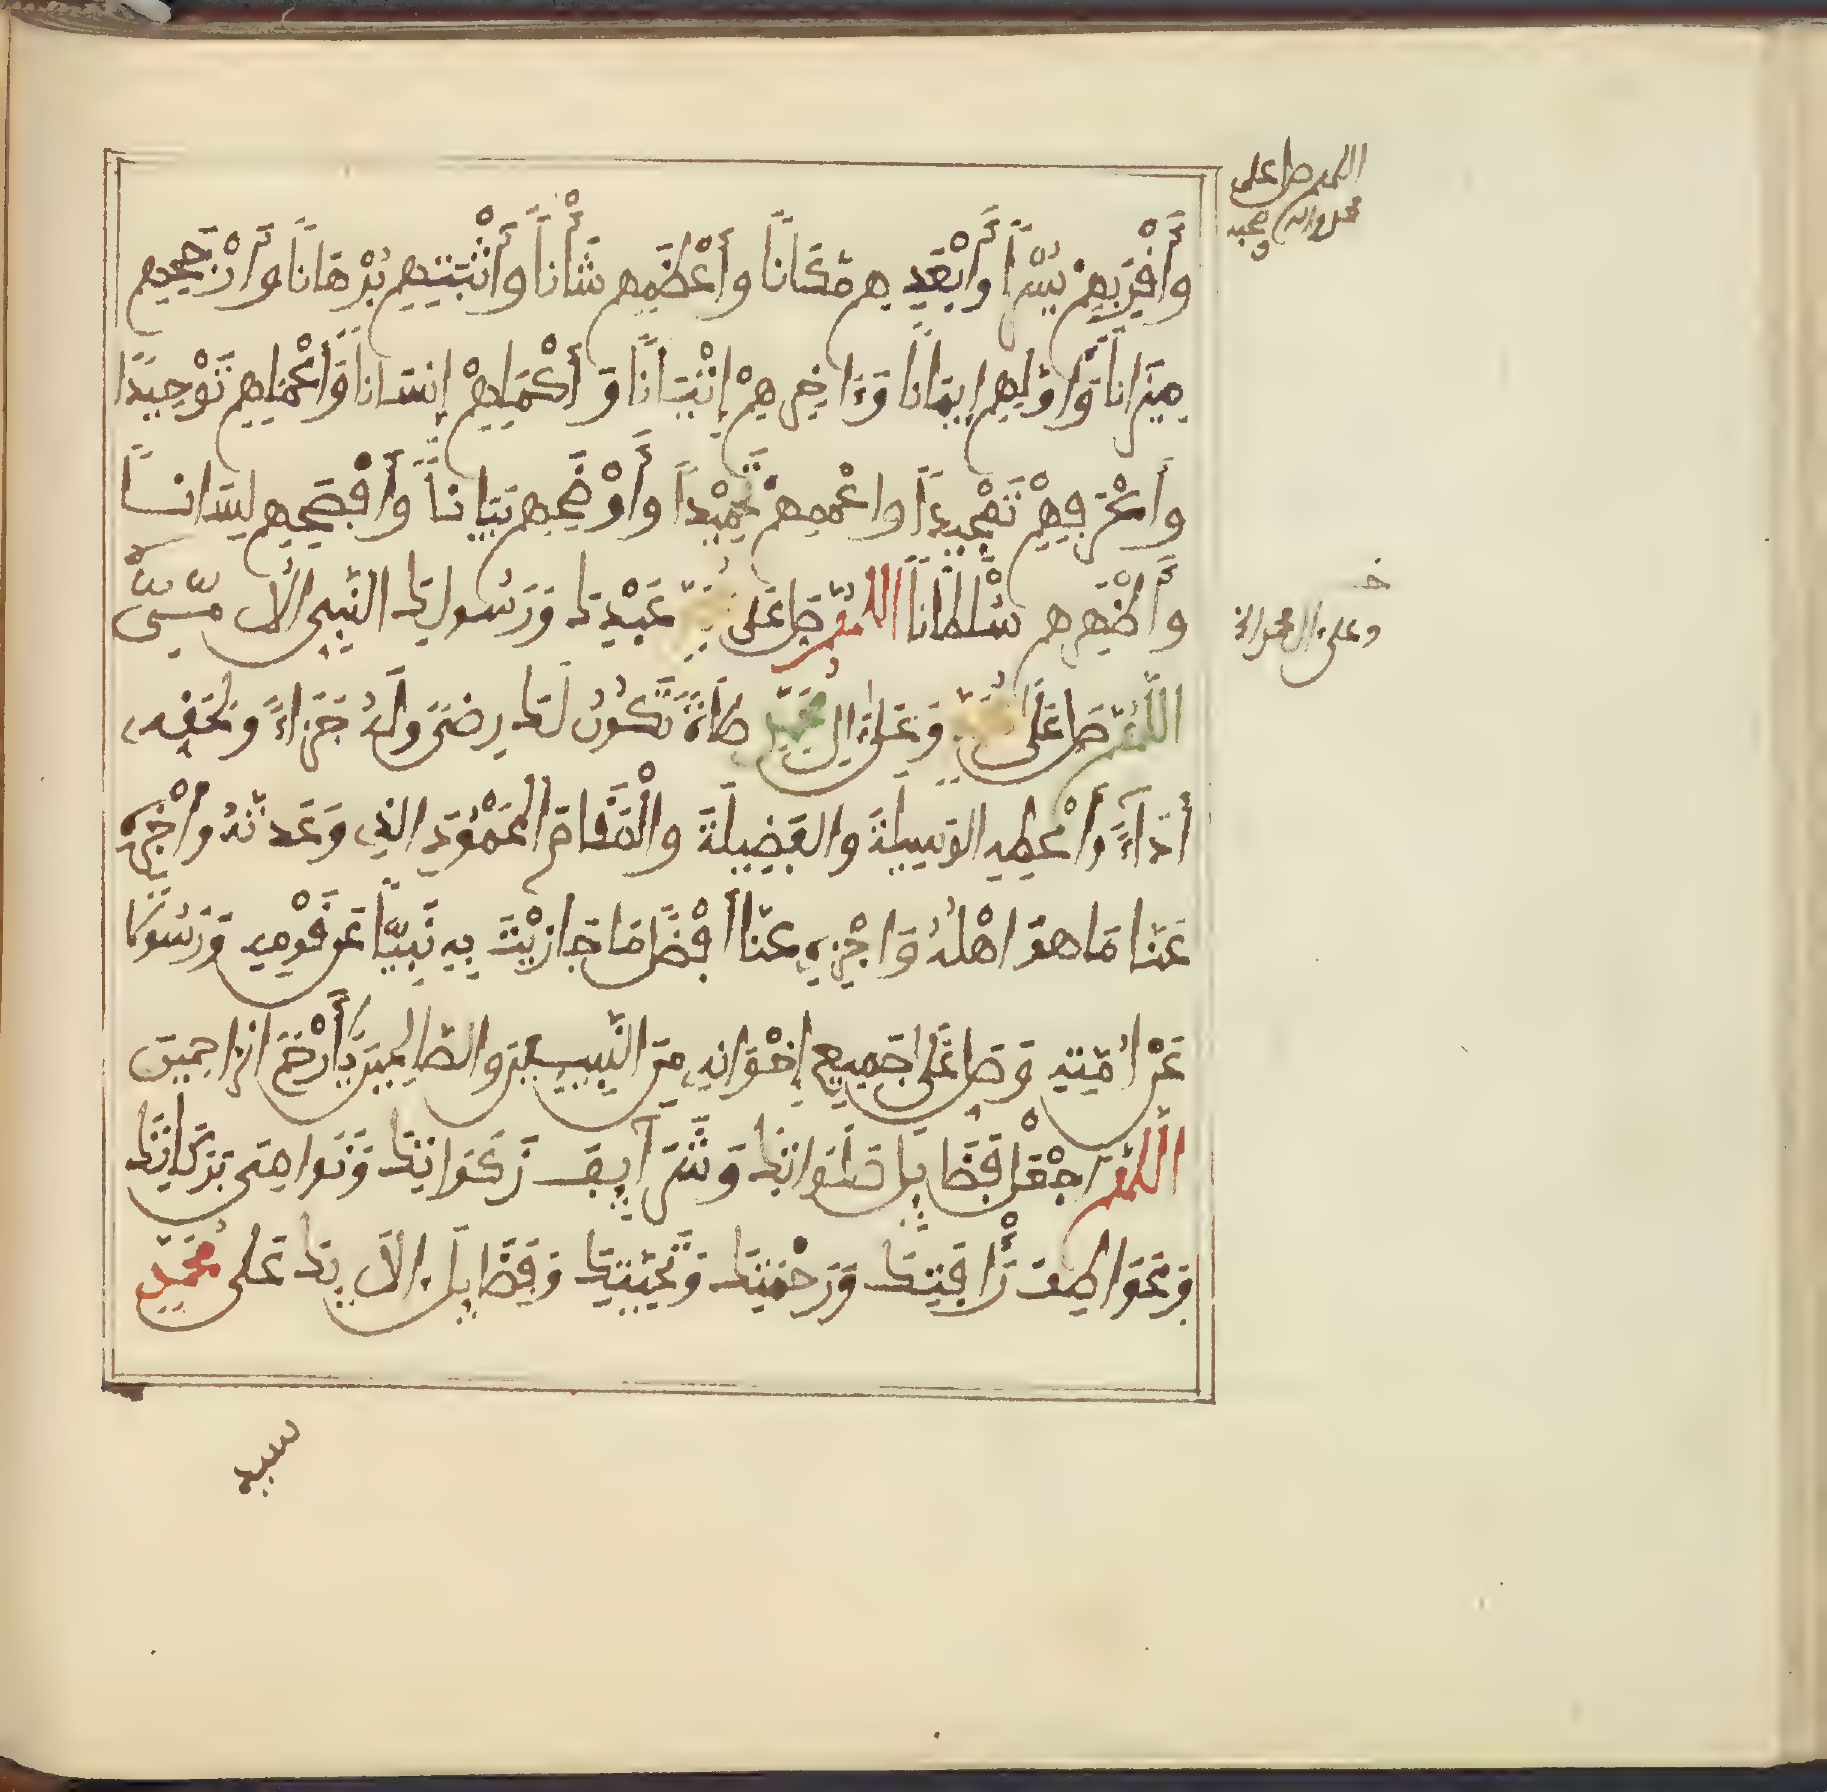 وَأَقْرَبِهِمْ يُسْرًا وَأَبْعَدِهِم مَّكَانًا وَأَعْظَمِهِم شَأْنًا وَأَثْبَتِهِم بُرْهَانًا وَأَرْجَحِهِم
مِيزَانًا وَأَوَّلِهِم إِيمَانًا وَءَاخِرِهِمْ إِتْيَانًا وَأَكْمَلِهِمْ إِنسَانًا وَأَعْمَلِهِم تَوْحِيدًا
وَأَعْرَفِهِمْ تَمْجِيدًا وَأَعْمَمِهِمْ تَحْمِيْدًا وَأَوْضَحِهِم بَيَانًا وَأَفْصَحِهِم لِسَانًا
وَأَظْهَرِهِم سُلْطَانًا اللَّهُمَّ صَلِّ عَلَى مُحَمَّدٍ عَبْدِكَ وَرَسُولِكَ النَّبِيِّ الأُمِّيِّ
اللَّهُمَّ صَلِّ عَلَى مُحَمَّدٍ وَعَلَى ءَالِ مُحَمَّدٍ صَلَاةً تَكُونُ لَكَ رِضًى وَلَهُ جَزَاءً وَلِحَقِّهِ
أَدَاءً وَأَعْطِهِ الوَسِيلَةَ وَالفَضِيلَةَ وَالْمَقَامَ الْمَحْمُودَ الذِي وَعَدتَّهُ وَاجْزِهِ
عَنَّا مَا هُوَ اهْلُهُ وَاجْزِهِ عَنَّا أَفْضَلَ مَا جَازَيْتَ بِهِ نَبِيًّا عَن قَوْمِهِ وَرَسُولًا
عَنْ امَّتِهِ وَصَلِّ عَلَى جَمِيعِ إِخْوَانِهِ مِنَ النَّبِيِّينَ وَالصَّالِحِينَ يَا أَرْحَمَ الرَّاحِمِينَ
اللَّهُمَّ اجْعَلْ فَضَايِلَ صَلَوَاتِكَ وَشَرَآيِفَ زَكَوَاتِكَ وَنَوَامِيَ بَرَكَاتِكَ
وَعَوَاطِفَ رَأْفَتِكَ وَرَحْمَتِكَ وَتَحِيَّتِكَ وَفَضَايِلَ الَآيِكَ عَلَى مُحَمَّدٍ
اللهم صل على
محمد واله وصحبه
وعلى ال محمد
سيد